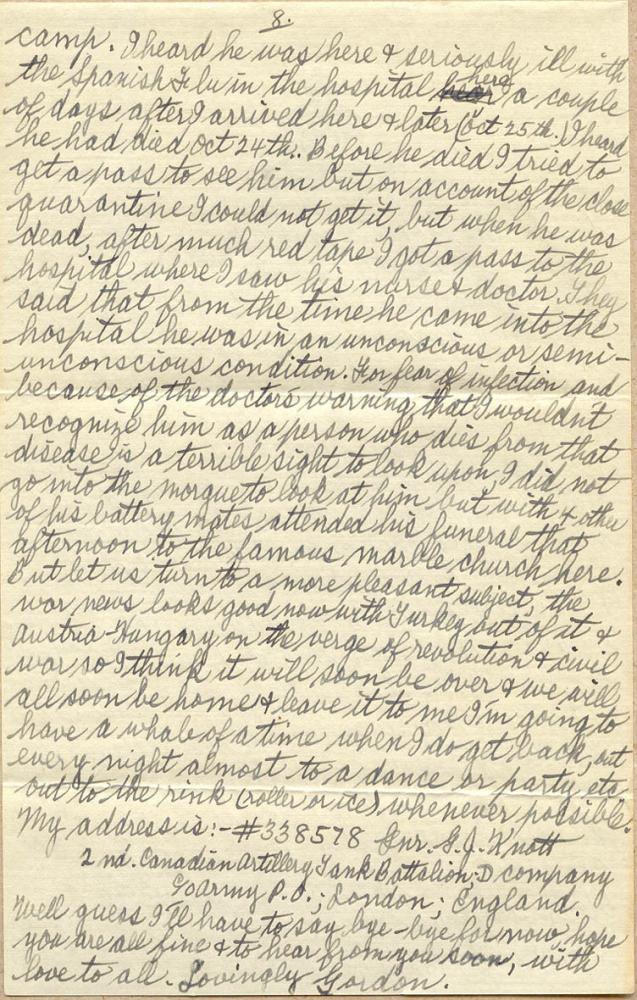 8.
camp. I heard he was here & seriously ill with
the Spanish Flu in the hospital here a couple
of days after I arrived here & later (Oct 25th.) I heard
he had died Oct 24th.. Before he died I tried to
get a pass to see him but on account of the close
quarantine I could not get it, but when he was
dead, after much red tape I got a pass to the
hospital where I saw his nurse & doctor. They
said that from the time he come into the
hospital he was in an unconscious or semi-
unconscious condition. For fear of infection and
because of the doctors warning that I wouldn't
recognize him as a person who dies from that
disease is a terrible sight to look upon, I did not
go into the morgue to look at him but with 4 other
of his battery mates attended his funeral that
afternoon to the famous marble church here.
But let us turn to a more pleasant subject, the
war news looks good now with Turkey out of it &
Austria-Hungary on the verge of revolution & civil
war so I think it will soon be over & we will
all soon be home & leave it to me I'm going to
have a whale of a time when I do get back, out
every night almost to a dance or party etc
out to the rink (roller or ice) whenever possible.
My address is:- #338578 Gnr. G.J. Knott
2nd. Canadian Artillery Tank Battalion-D company
c/o Army P.O.; London; England.
Well guess I'll have to say bye-bye for now, hope
you are all fine & to hear from you soon, with
love to all. Lovingly Gordon.